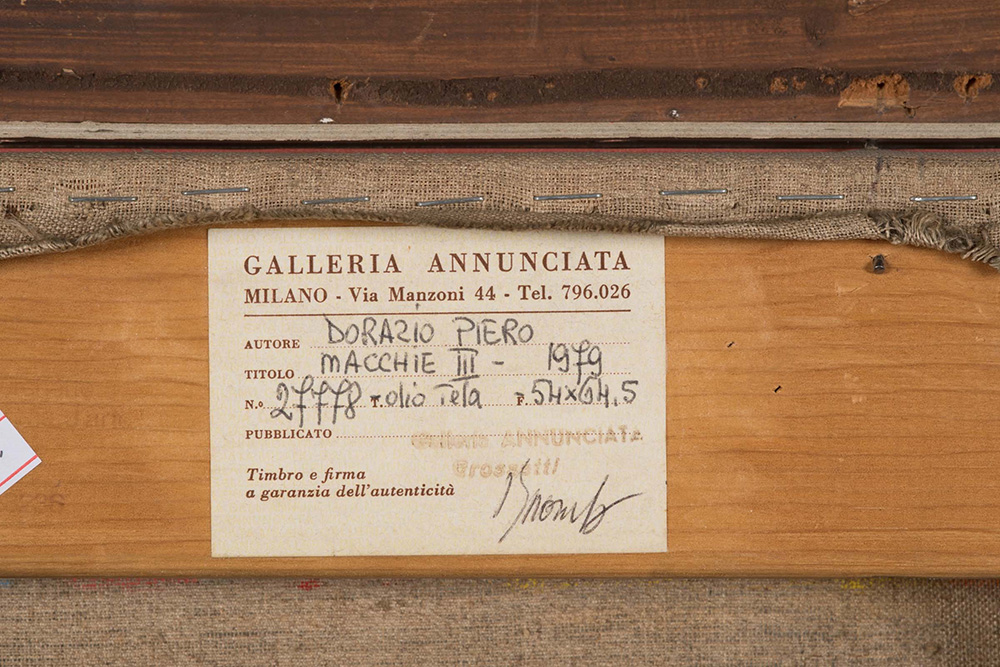 GALLERIA ANNUNCIATA
MILANO - Via Manzoni 44 - Tel. 796.026
AUTORE DORAZIO PIERO
TITOLO MACCHIE III - 1979
N.º 27778 T. olio Tela F. 54x64.5
PUBBLICATO
Galleria ANNUNCIATA
Grossetti
Timbro e firma
a garanzia dell'autenticità